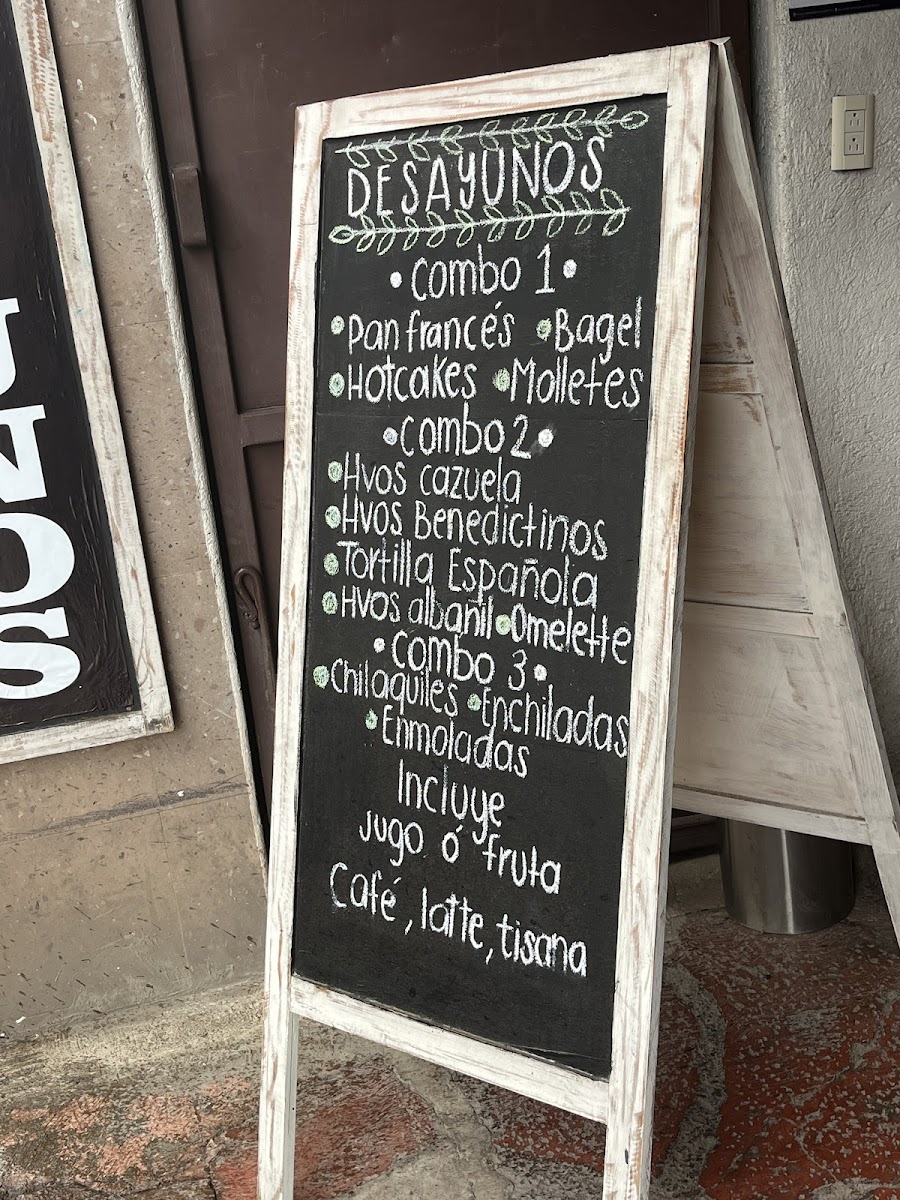 U
N
O
S
DESAYUNOS
• Combo 1 •
• Pan francés • Bagel
• Hotcakes • Molletes
• Combo 2 •
• Hvos cazuela
• Hvos Benedictinos
• Tortilla Española
• Hvos albañil • Omelette
• Combo 3 •
• Chilaquiles • Enchiladas
• Enmoladas
Incluye
Jugo ó fruta
Café, latte, tisana